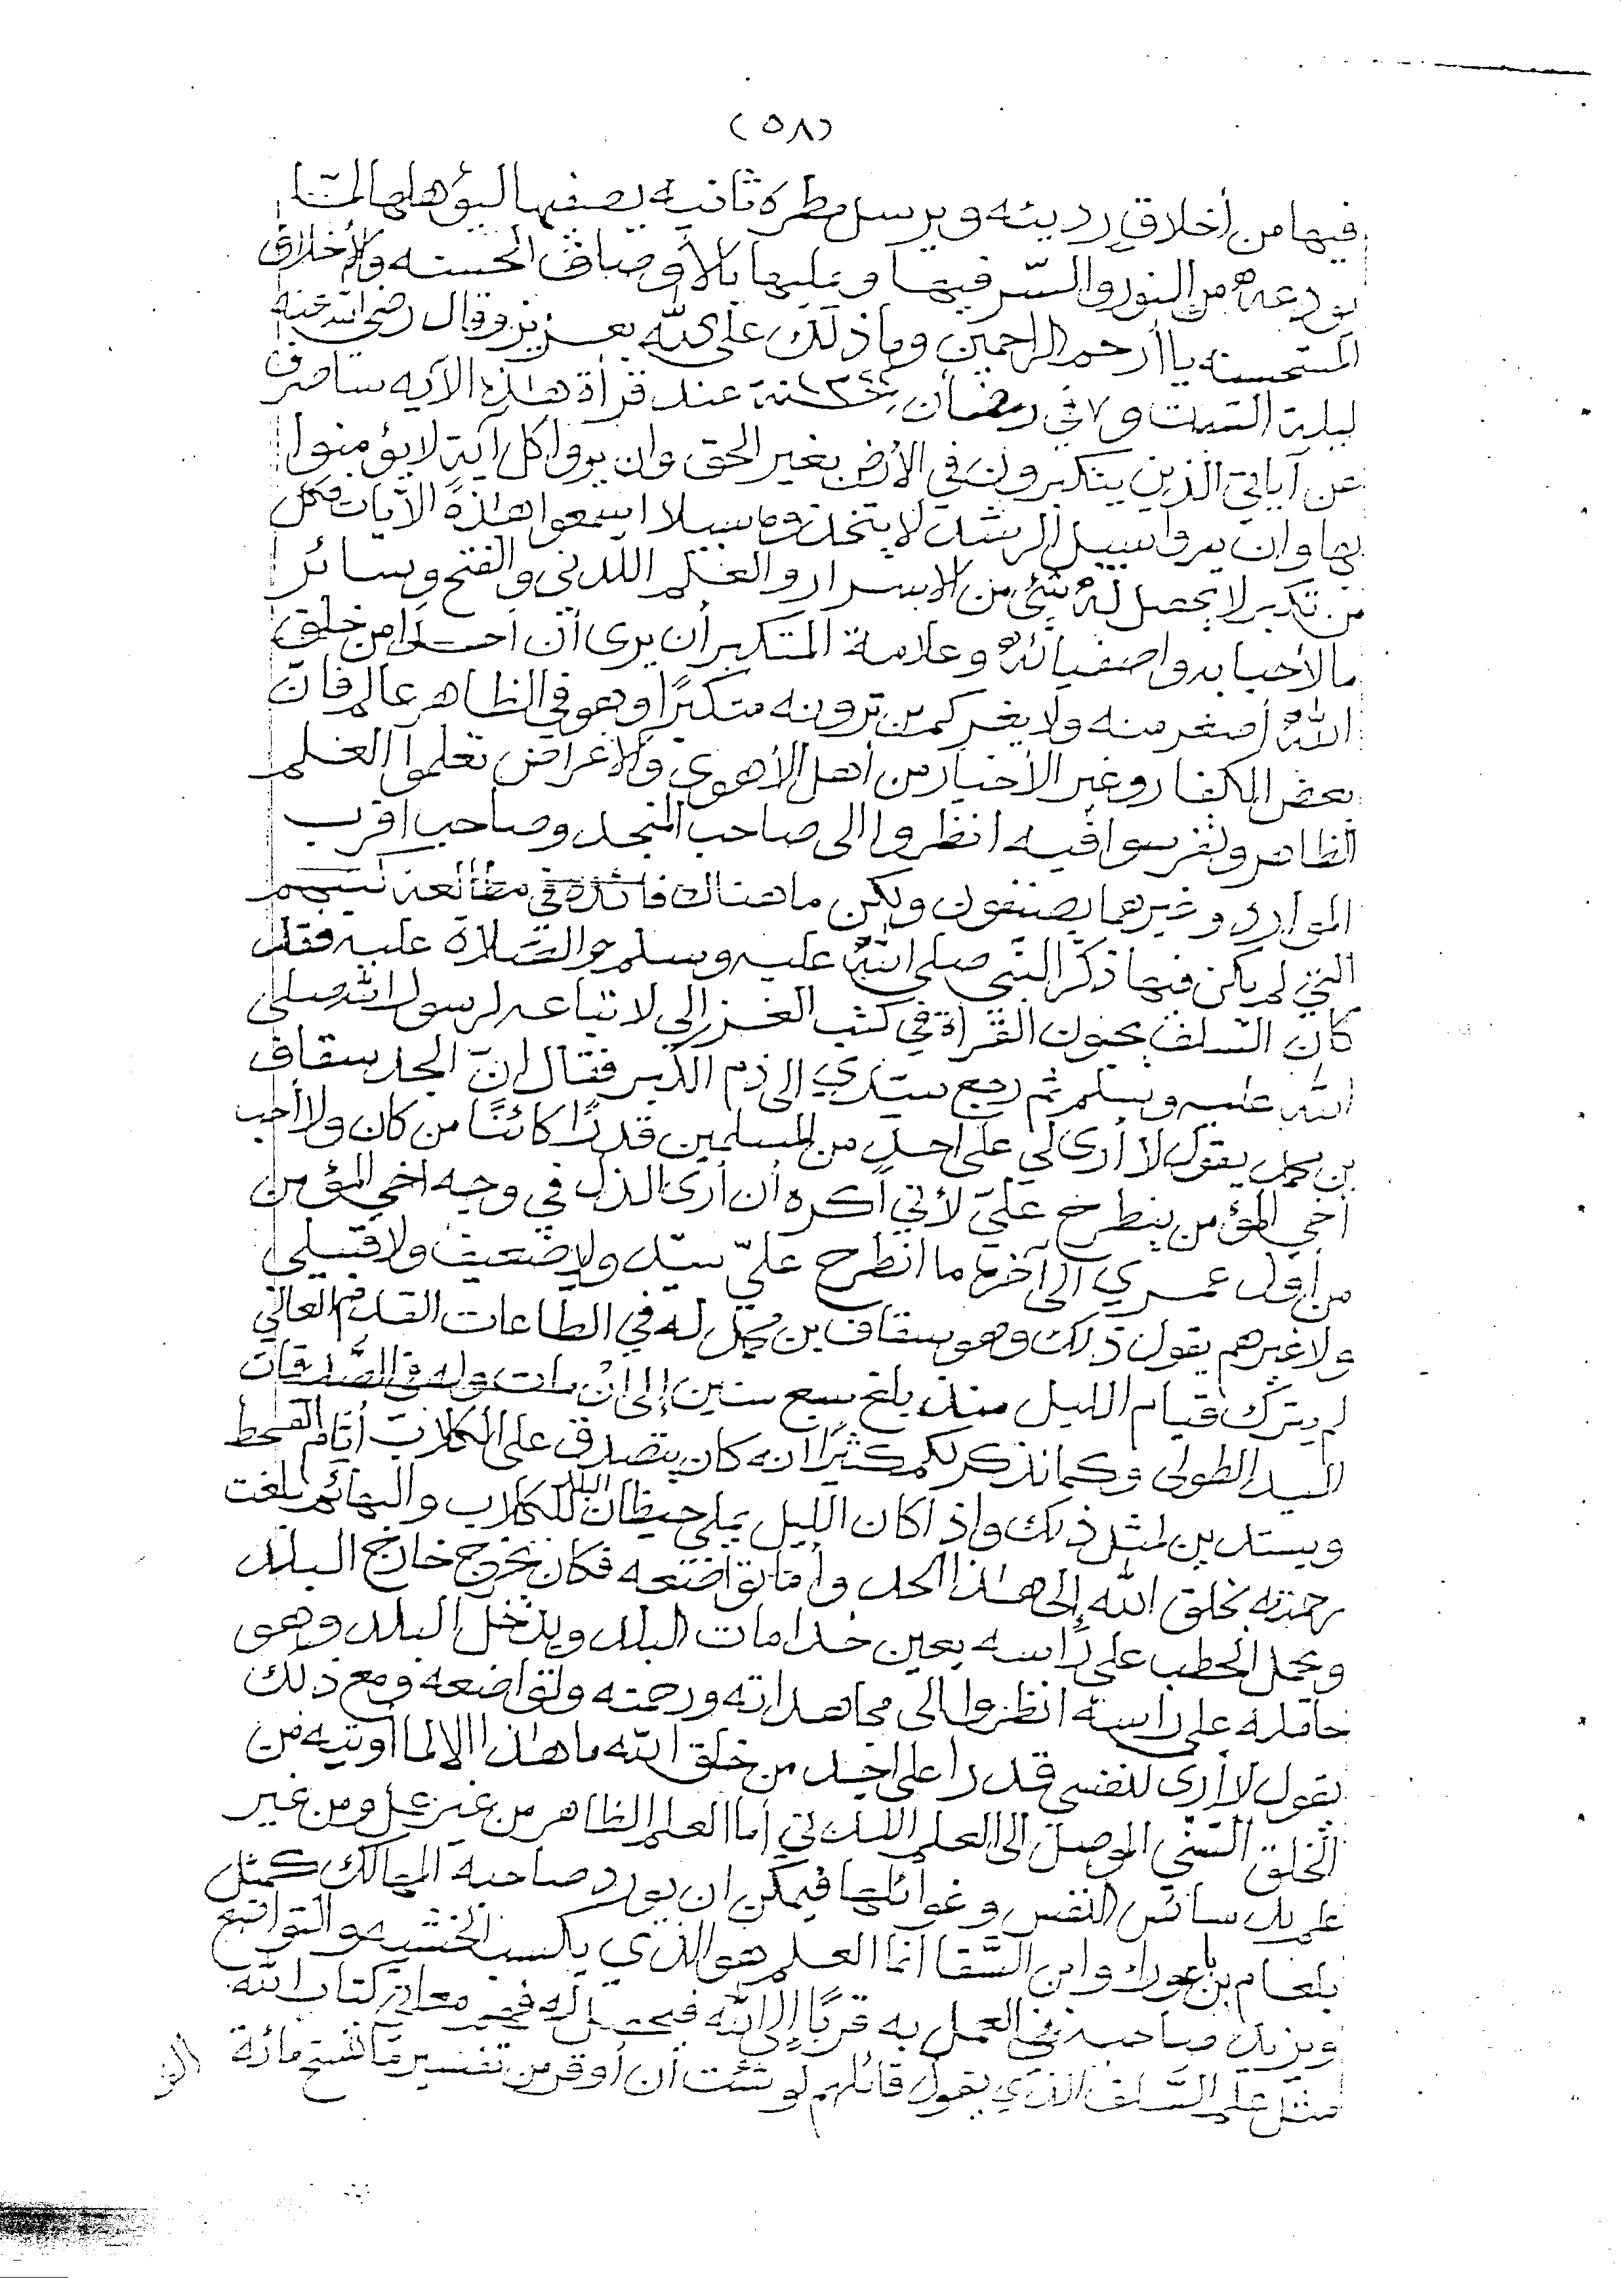 (٥٨)
فيها من أخلاقٍ رديئه ويرسل مطره ثانيه يصفيها ليؤهلها لما
يودعه من النور والسّر فيها ويمليها بالأوصاف الحسنه والأخلاق
المستحسنه يا أرحم الراحمين وما ذلك على الله بعزيز وقال رضي الله عنه
ليلة السبت و٧ في رمضان سنة عند قرأة هذه الآيه سأصرف
عن آياتي الذين يتكبرون في الأرض بغير الحق وان يروا كل آية لا يؤمنوا
بها وان يروا سبيل الرشد لا يتخذوه سبيلا اسمعوا هذه الآيات فكل
من تكبر لا يحصل له شئ من الاسرار والعلم اللدني والفتح وسائر
ما لأحبابه واصفيائه وعلامة المتكبر أن يرى أن احدا من خلق
الله أصغر منه ولا يغركم من ترونه متكبرًا وهو في الظاهر عالم فان
بعض الكفار وغير الأخيار من أهل الأهوى والأغراض تعلموا العلم
الظاهر وتفرسوا فيه انظروا الى صاحب المنجد وصاحب اقرب
الموارد وغيرهما يصنفون ولكن ما هناك فائدة في مطالعة كتبهم
التي لم يكن فيها ذكر النبي صلى الله عليه وسلم والصلاة عليه فقد
كان السلف يحبون القرأة في كتب الغزالي لاتباعه لرسول الله صلى
الله عليه وسلم ثم رجع سيدي الى ذم الكبر فقال ان الجد سقاف
بن محمد يقول لا أرى لي على احد من المسلمين قدرًا كائنًا من كان ولا أحب
أخي المؤمن ينطرح عليّ لأني أكره أن أرى الذل في وجه اخي المؤمن
من أول عمري الى آخره ما انطرح عليّ سيّد ولا ضعيف ولا قبيلي
ولا غيرهم يقول ذلك وهو سقاف بن محمد له في الطاعات القدم العالي
لم يترك قيام الليل منذ بلغ سبع سنين إلى انْ مات وله في الصّدقات
اليد الطولى وكما نذكر لكم كثيرًا انه كان يتصدق على الكلاب أيّام القحط
ويستدين لمثل ذلك واذا كان الليل يملي حيظان البلد للكلاب والبهائم بلغت
رحمته بخلق الله إلى هذا الحد وأما تواضعه فكان يخرج خارج البلد
ويحمل الحطب على رأسه يعين خدامات البلد ويدخل البلد وهو
حامله على راسه انظروا الى مجاهداته ورحمته وتواضعه ومع ذلك
يقول لا أرى لنفسي قدرا على احد من خلق الله ما هذا الا لما أوتيه من
الخلق السّني الموصل الى العلم اللدني أما العلم الظاهر من غير عمل ومن غير
علم بدسائس النفس وغوائلها فيمكن ان يورد صاحبه المهالك كمثل
بلعام بن باعوراء وابن السّقا انما العلم هو الذي يكسب الخشيه والتواضع
ويزيد صاحبه في العمل به قربًا إلى الله فيحصل له فهم معاني كتاب الله
مثل علم السّلف الذي يقول قائلهم لو شئت أن أوقر من تفسير ما ننسخ مائة
الف